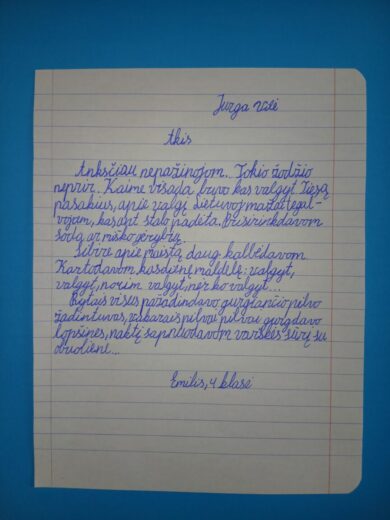 Jurga Vilė
Akis
Anksčiau nepažinojom.. Tokio žodžio
nebuvo.. Kaime visada buvo kas valgyt. Tiesą
pasakius, apie valgį Lietuvoj mažai tegal-
vojom, kas ant stalo padėta. Prisirinkdavom
sodo ar miško gėrybių.
Sibire apie maistą daug kalbėdavom
Kartodavom kasdienę maldelę: valgyt,
valgyt, norim valgyt, nėr ko valgyt...
Rytais visus pažadindavo gurgiančio pilvo
žadintuvas, vakarais pilvai pilvui gurgdavo
lopšines, naktį sapnuodavom varškės sūrį su
obuoliene...
Emilis, 4 klasė